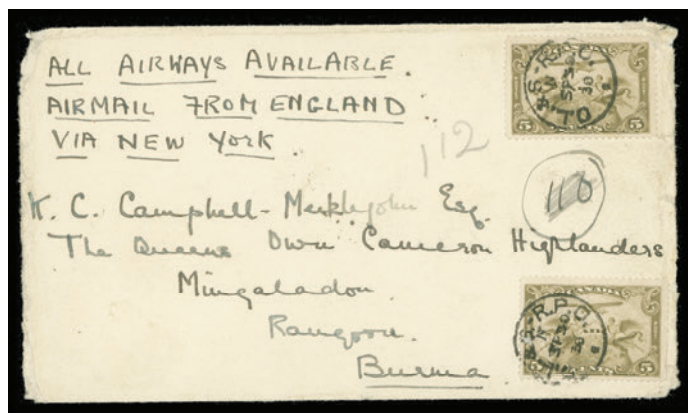 ALL AIRWAYS AVAILABLE.
AIRMAIL FROM ENGLAND
VIA NEW YORK.
112
110
K. C. Campbell-Meiklejohn Esq.
The Queens Own Cameron Highlanders
Mingaladon.
Rangoon.
Burma
CANADA
5 5
R.P.O.
SP 30
30
CANADA
5 5
R.P.O.
SP 30
30